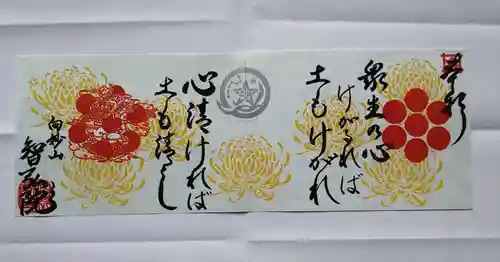 奉拝
衆生の心
けがるれば
土もけがれ
心清ければ
土も清し
白妙山
智